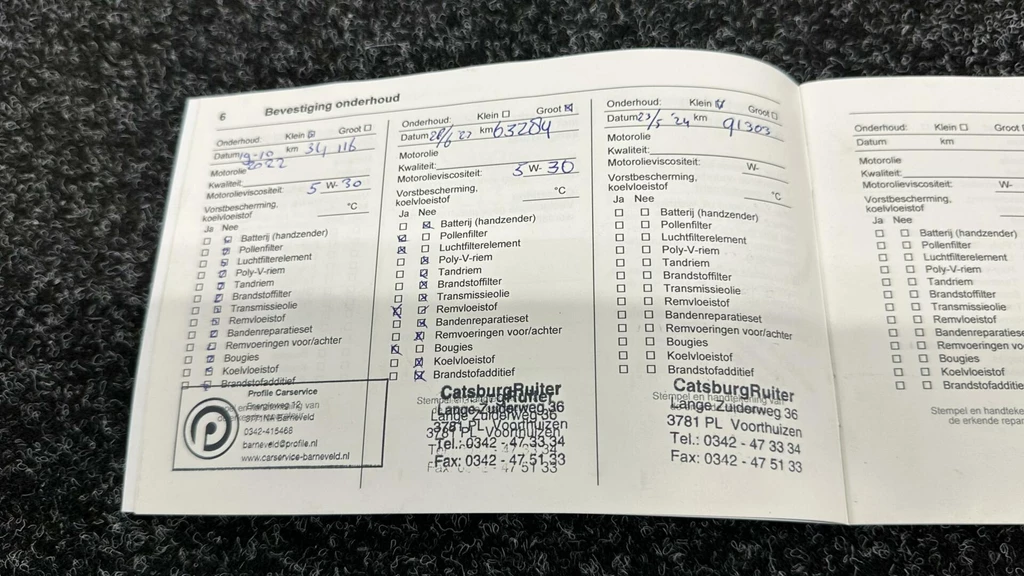 6 Bevestiging onderhoud
Onderhoud: Klein Groot
Datum 19-10 2022 km 34 116
Motorolie
Kwaliteit:
Motorolieviscositeit: 5 W- 30
Vorstbescherming,
koelvloeistof °C
Ja Nee
Batterij (handzender)
Pollenfilter
Luchtfilterelement
Poly-V-riem
Tandriem
Brandstoffilter
Transmissieolie
Remvloeistof
Bandenreparatieset
Remvoeringen voor/achter
Bougies
Koelvloeistof
Brandstofadditief
Profile Carservice
Energieweg 12
3771 NA Barneveld
0342-415468
barneveld@profile.nl
www.carservice-barneveld.nl
Onderhoud: Klein Groot
Datum 28/6 '23 km 63204
Motorolie
Kwaliteit:
Motorolieviscositeit: 5 W- 30
Vorstbescherming,
koelvloeistof °C
Ja Nee
Batterij (handzender)
Pollenfilter
Luchtfilterelement
Poly-V-riem
Tandriem
Brandstoffilter
Transmissieolie
Remvloeistof
Bandenreparatieset
Remvoeringen voor/achter
Bougies
Koelvloeistof
Brandstofadditief
CatsburgRuiter
Lange Zuiderweg 36
3781 PL Voorthuizen
Tel.: 0342 - 47 33 34
Fax: 0342 - 47 51 33
Onderhoud: Klein Groot
Datum 23/5 '24 km 91303
Motorolie
Kwaliteit:
Motorolieviscositeit: W-
Vorstbescherming,
koelvloeistof °C
Ja Nee
Batterij (handzender)
Pollenfilter
Luchtfilterelement
Poly-V-riem
Tandriem
Brandstoffilter
Transmissieolie
Remvloeistof
Bandenreparatieset
Remvoeringen voor/achter
Bougies
Koelvloeistof
Brandstofadditief
Stempel en handtekening van
CatsburgRuiter
Lange Zuiderweg 36
3781 PL Voorthuizen
Tel.: 0342 - 47 33 34
Fax: 0342 - 47 51 33
Onderhoud: Klein Groot
Datum km
Motorolie
Kwaliteit:
Motorolieviscositeit: W-
Vorstbescherming,
koelvloeistof
Ja Nee
Batterij (handzender)
Pollenfilter
Luchtfilterelement
Poly-V-riem
Tandriem
Brandstoffilter
Transmissieolie
Remvloeistof
Bandenreparatiese
Remvoeringen vo
Bougies
Koelvloeistof
Brandstofadditief
Stempel en handteke
de erkende repa